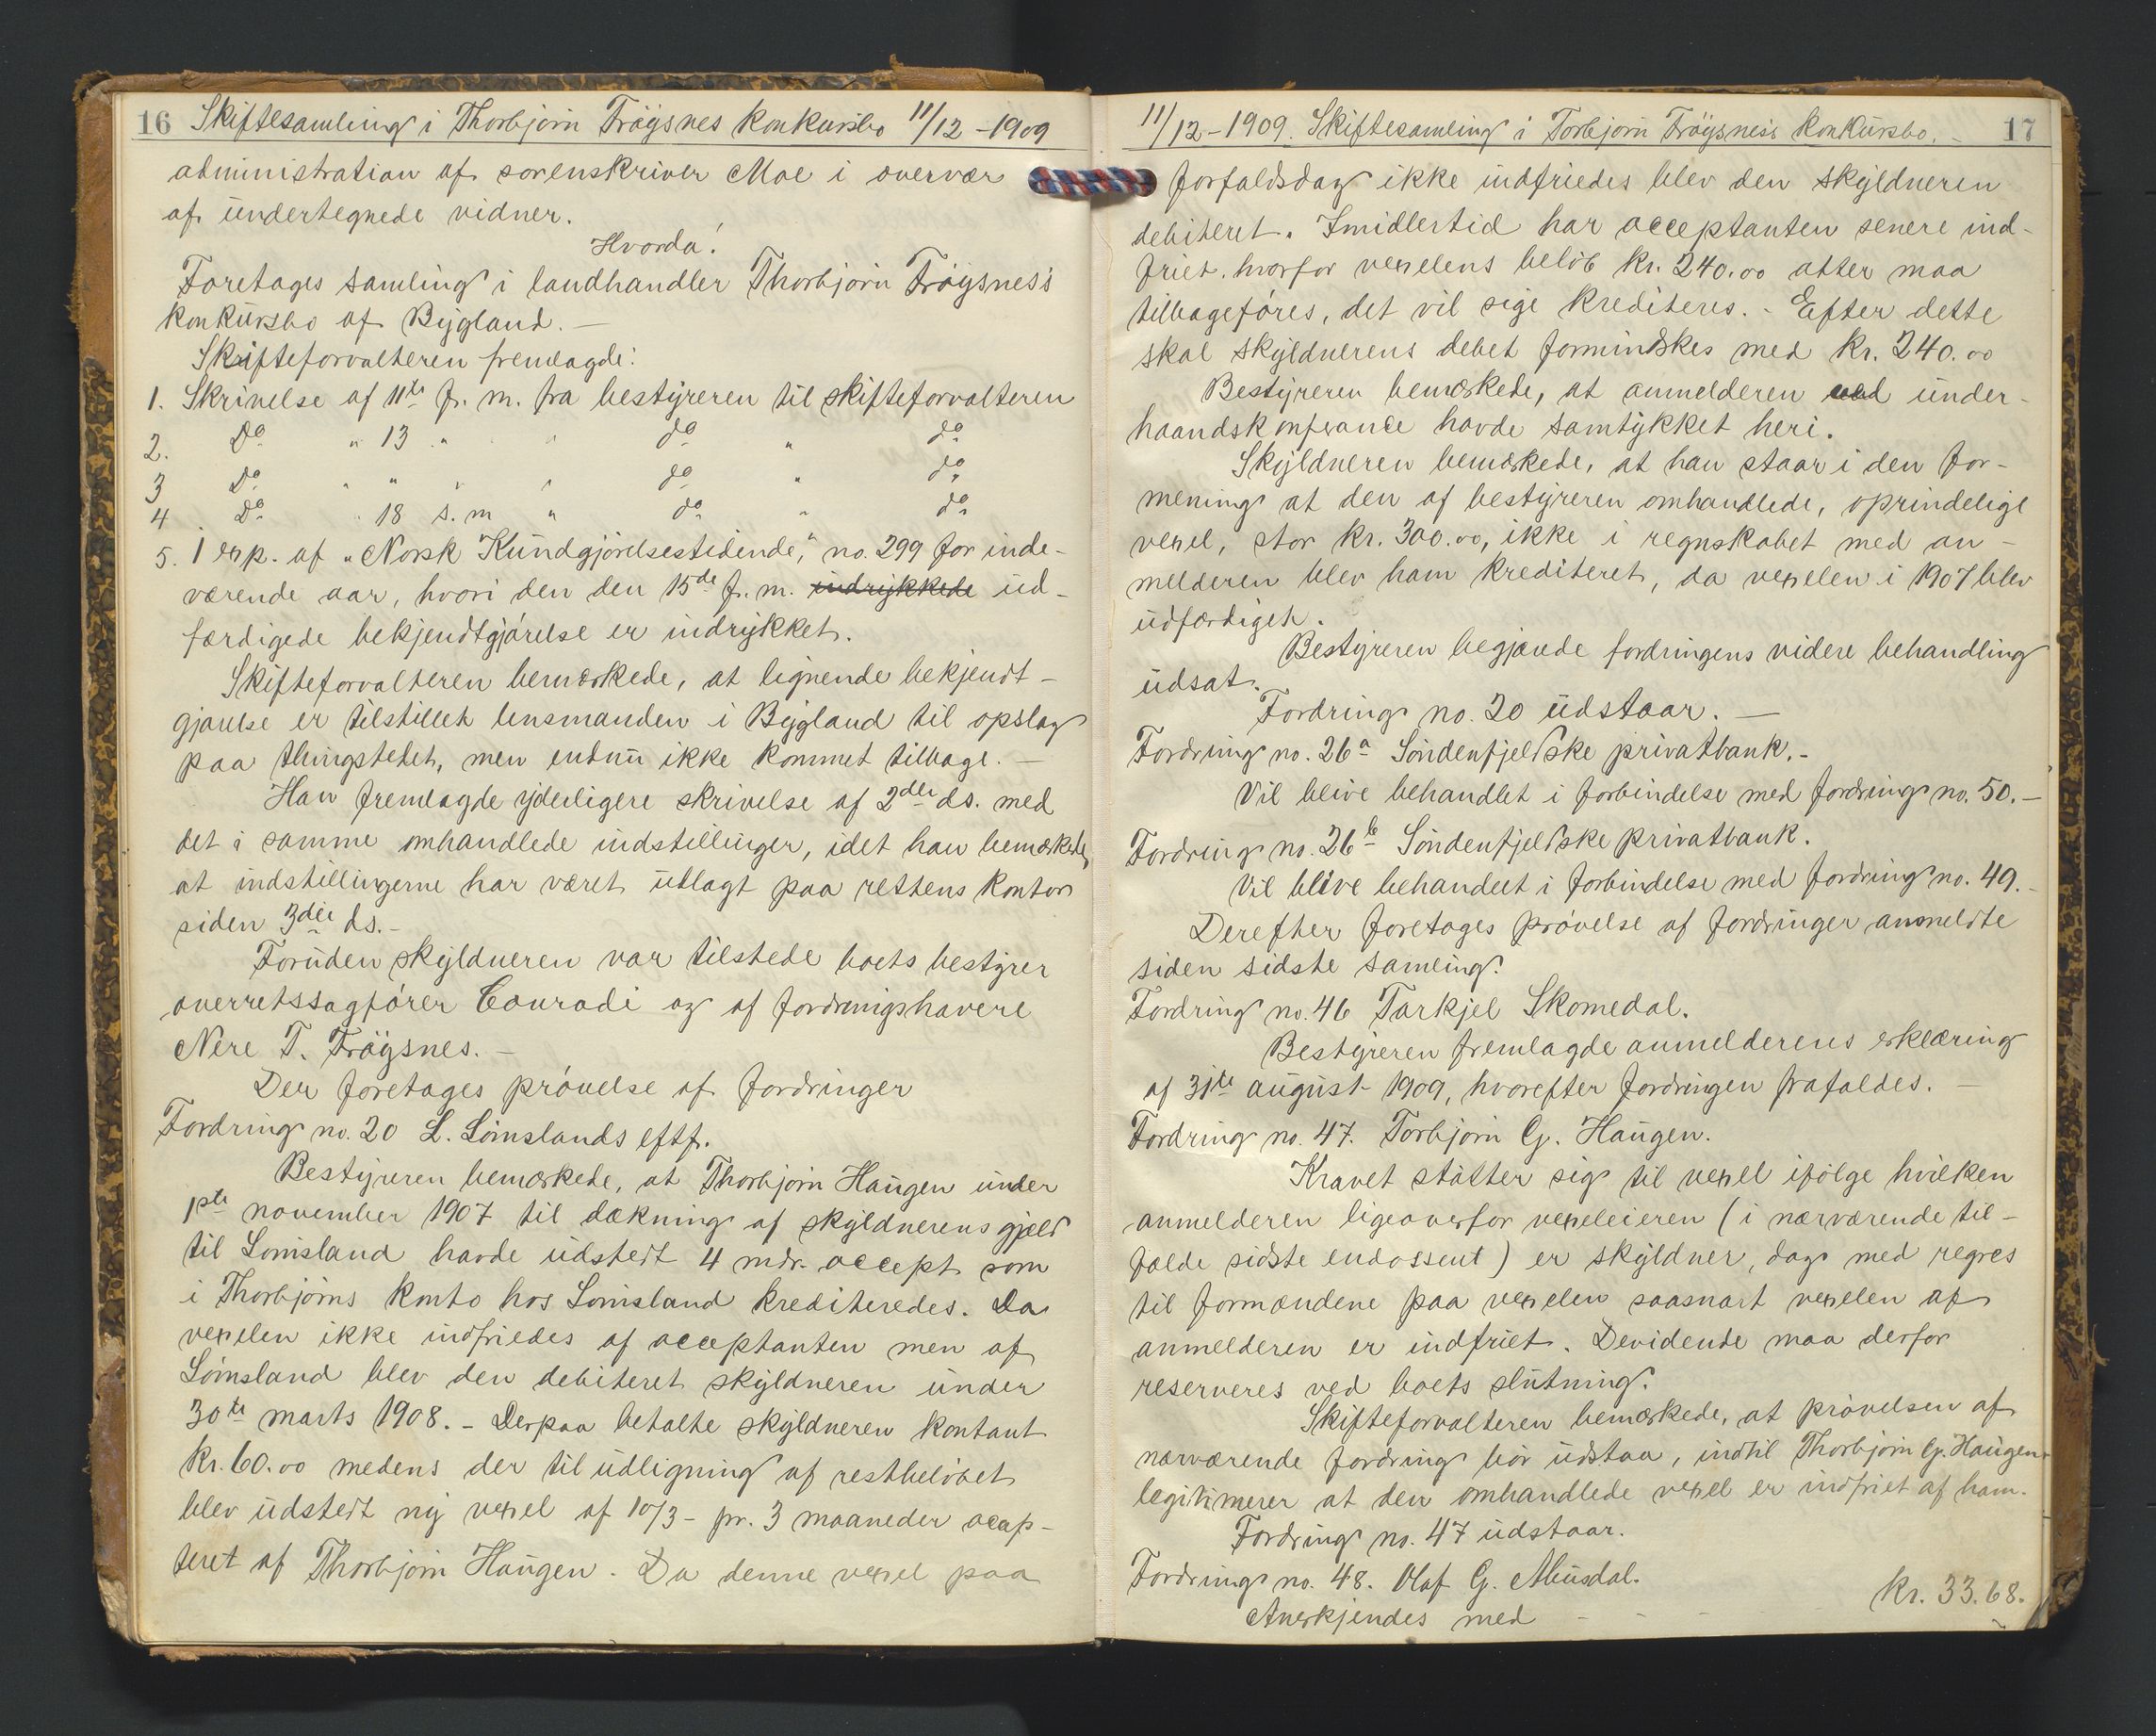 16 Skiftesamling i Thorbjörn Fröysnes Konkursbo 11/12 - 1909
administration af sorenskriver Moe i overvær
af undertegnede vidner.
Hvorda!
Foretages samling i landhandler Thorbjörn Fröysnes's
konkursbo af Bygland. -
Skifteforvalteren fremlagde:
1. Skrivelse af 11te f. m. fra bestyreren til skifteforvalteren
2. Do " 13 " " do " do
3 Do " " " " do " do
4 Do " 18 s. m " do " do
5. 1 exp. af "Norsk Kundgjörelsestidende," no. 299 for inde-
værende aar, hvori den den 15de f. m. indrykkede ud-
færdigede bekjendtgjörelse er indrykket.
Skifteforvalteren bemærkede, at lignende bekjendt-
gjörelse er tilstillet lensmanden i Bygland til opslag
paa thingstedet, men endnu ikke kommet tilbage. -
Han fremlagde yderligere skrivelse af 2den ds. med
det i samme omhandlede indstillinger, idet han bemærkede,
at indstillingerne har været utlagt paa rettens kontor
siden 3die ds. -
Foruden skyldneren var tilstede boets bestyrer
overretssagförer Conradi og af fordringshavere
Nere T. Fröysnes. -
Der foretages prövelse af fordringer
Fordring no. 20 L. Lömslands eftf.
Bestyreren bemærkede, at Thorbjörn Haugen under
1ste november 1907 til dækning af skyldnerens gjeld
til Lömsland havde udstedt 4 mdr. accept som
i Thorbjörns konto hos Lömsland krediteredes. Da
vexelen ikke indfriedes af acceptanten men af
Lömsland blev den debiteret skyldneren under
30te marts 1908. - Derpaa betalte skyldneren kontant
kr. 60.00 medens der til udligning af restbelöbet
blev udstedt ny vexel af 10/3 - pr. 3 maaneder accep-
teret af Thorbjörn Haugen. Da denne vexel paa
11/12 - 1909. Skiftesamling i Torbjörn Fröysnes's konkursbo. - 17
forfaldsdag ikke indfriedes blev den skyldneren
debiteret. Imidlertid har acceptanten senere ind-
friet. hvorfor vexelens belöb kr. 240.00 atter maa
tilbageföres, det vil sige krediteres. - Efter dette
skal skyldnerens debet formindskes med kr. 240.00
Bestyreren bemærkede, at anmelderen ved under-
haandskonferance havde samtykket heri.
Skyldneren bemærkede, at han staar i den for-
mening at den af bestyreren omhandlede, oprindelige
vexel, stor kr. 300.00, ikke i regnskabet med an-
melderen blev ham krediteret, da vexelen i 1907 blev
udfærdiget.
Bestyreren begjærede fordringens videre behandling
udsat.
Fordring no. 20 udstaar. -
Fordring no. 26a Söndenfjeldske privatbank. -
Vil blive behandlet i forbindelse med fordring no. 50. -
Fordring no. 26b Söndenfjeldske privatbank.
Vil blive behandlet i forbindelse med fordring no. 49. -
Derefter foretages prövelse af fordringer anmeldte
siden sidste samling:
Fordring no. 46 Tarkjel Skomedal.
Bestyreren fremlagde anmelderens erklæring
af 31te august 1909, hvorefter fordringen frafaldes. -
Fordring no. 47. Torbjörn G. Haugen.
Kravet stötter sig til vexel ifölge hvilken
anmelderen ligeoverfor vexeleieren (i nærværende til-
fælde sidste endossent) er skyldner, dog med regres
til formændene paa vexelen saasnart vexelen af
anmelderen er indfriet. Devidende maa derfor
reserveres ved boets slutning.
Skifteforvalteren bemærkede, at prövelsen af
nærværende fordring bör udstaa, indtil Thorbjörn G. Haugen
legitimerer at den omhandlede vexel er indfriet af ham.
Fordring no. 47 udstaar.
Fordring no. 48. Olaf G. Austdal.
Anerkjendes med - - - kr. 33.68.